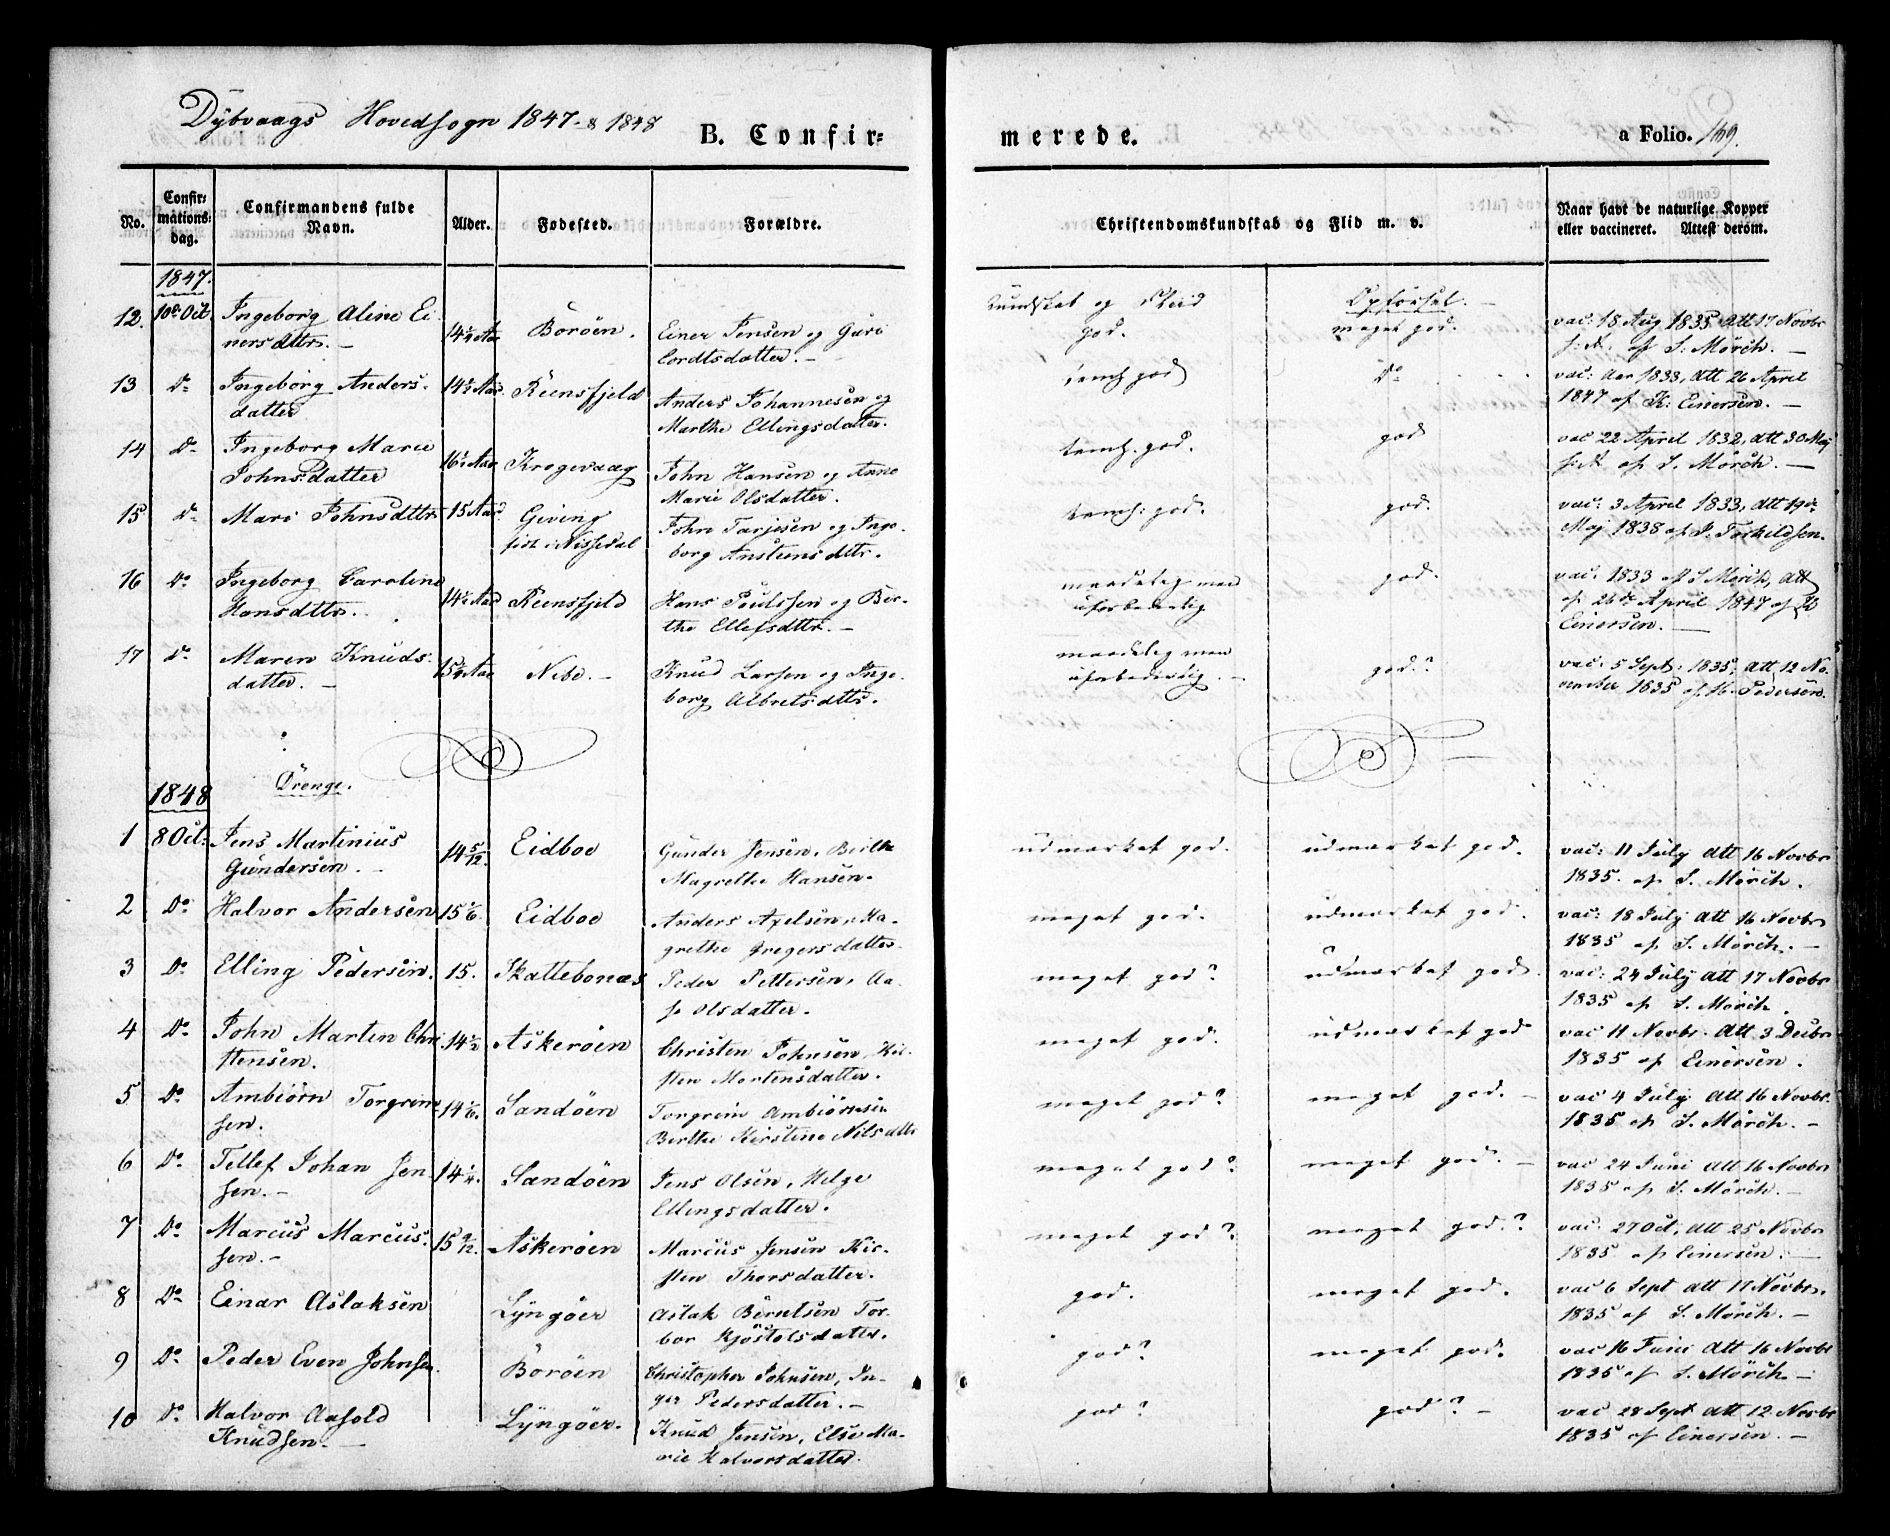 Dybvaags Hovedsogn 1847 & 1848
B. Confirmerede.
a Folio. 169.
No. Confirmationsdag. Confirmandens fulde Navn. Alder. Fødested. Forældre. Christendomskundskab og Flid m. v. Naar havt de naturlige Kopper eller vaccineret. Attest derom.
1847.
Kundskab og Flid Opførsel. -
12. 10de Oct. Ingeborg Aline Ei-
nersdttr. - 14½ Aar Borøen. Einer Jensen og Guro
Cordtsdatter. - god. meget god. vac: 18 Aug 1835 Att 17 Novbr
s: A. af S. Mörch. -
13 Do Ingeborg Anders-
datter 14½ Aar Reensfjeld Anders Johannesen og
Marthe Ellingsdatter. temh god Do vac: Aar 1833, Att 26 April
1847 af K: Einersen. -
14 Do Ingeborg Marie
Johnsdatter 16½ Aar Krogevaag John Hansen og Anne
Marie Olsdatter. temh. god. god vac 22 April 1832, Att 30 Maj
s: A af S. Mörch. -
15 Do Mari Johnsdttr 15 Aar Giving
fød i Nissedal John Tarjesen og Inge-
borg Anstensdttr. temh: god. god. vac: 3 April 1833, Att 19de
Maj 1838 af J. Torkildsen.
16 Do Ingeborg Caroline
Hansdttr. 14½ Aar Reensfjeld Hans Poulssen og Bir-
the Ellefsdttr. - maadelig men
uforbederlig god. vac: 1833 af S Mörch, Att
af 26de April 1847 af K
Einersen. -
17 Do Maren Knuds-
datter. - 15¼ Aar Nibe. - Knud Larsen og Inge-
borg Albretsdttr. maadelig men
uforbederlig. - god.? vac: 5 Sept: 1835, Att 12 No-
vember 1835 af H. Pedersen.
1848 Drenge.
1 8 Oct: Jens Martinius
Gundersen. - 14 5/12 Eidboe Gunder Jensen, Birthe
Magrethe Hansen. udmærket god. udmærket god. vac: 11 July Att 16 Novbr
1835. af S. Mörch.
2 Do Halvor Andersen 15 1/6. Eidboe Anders Axelsen, Ma-
grethe Gregersdatter. meget god. udmærket god. vac: 18 July Att 16 Novbr
1835 af S. Mörch. -
3 Do Elling Pedersen. 15. Skattebonæs Peder Pettersen, Aa-
se Olsdatter. meget god? udmærket god. vac: 24 July Att 17 Novbr
1835 af S. Mörch.
4 Do John Marten Chri
stensen. 14½ Askerøen Christen Johnsen, Kir-
sten Mortensdatter. meget god. udmærket god vac 11 Novbr. Att 3 Decbr
1835 af Einersen.
5 Do Ambiörn Torgrim-
sen. 14 1/6. Sandøen Torgrim Ambiörnsen
Birthe Kirstine Nilsdttr meget god? meget god. - vac 4 July Att 16 Novbr.
1835 af S. Mörch. -
6 Do Tellef Johan Jen-
sen. - 14¼. Sandøen Jens Olsen, Helge
Ellingsdatter. meget god? meget god. - vac 24 Juni Att 16 Novbr
1835 af S. Mörch. -
7 Do Marcus Marcus-
sen. - 15 9/12. Askerøen Marcus Jensen Kir-
sten Thorsdatter. meget god? meget god.? vac: 27 Oct, Att 25 Novbr
1835 af Einersen. -
8 Do Einar Aslaksen Lyngøer Aslak Berntsen Tor-
bor Kjöstolsdatter. god. meget god. vac 6 Sept Att 17 Novbr.
1835 af S. Mörch. -
9 Do Peder Even Johnsen. Borøen Christopher Johnsen, In-
ger Pedersdatter. - god? meget god. vac 16 Juni Att 16 Novbr
1835 af S. Mörch. -
10 Do Halvor Aasold
Knudsen. - Lyngøer. Knud Jensen, Else Ma-
rie Halvorsdatter. god? god? - vac 28 Sept Att 12 Novbr
1835 af Einersen. -